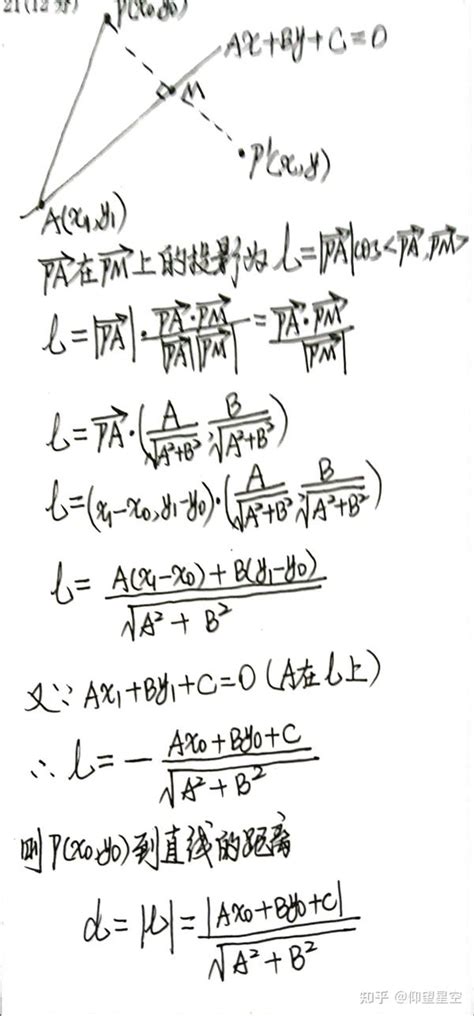 21(12分)
P(x₀,y₀)
Ax+By+C=0
M
P'(x,y)
A(x₁,y₁)
PA在PM上的投影为 l=|PA|cos<PA,PM>
l=|PA|·PA·PM/|PA||PM|=PA·PM/|PM|
l=PA·(A/√A²+B²,B/√A²+B²)
l=(x₁-x₀,y₁-y₀)·(A/√A²+B²,B/√A²+B²)
l=A(x₁-x₀)+B(y₁-y₀)/√A²+B²
又∵Ax₁+By₁+C=0(A在l上)
∴l=-Ax₀+By₀+C/√A²+B²
则P(x₀,y₀)到直线的距离
d=|l|=|Ax₀+By₀+C|/√A²+B²
知乎 @仰望星空